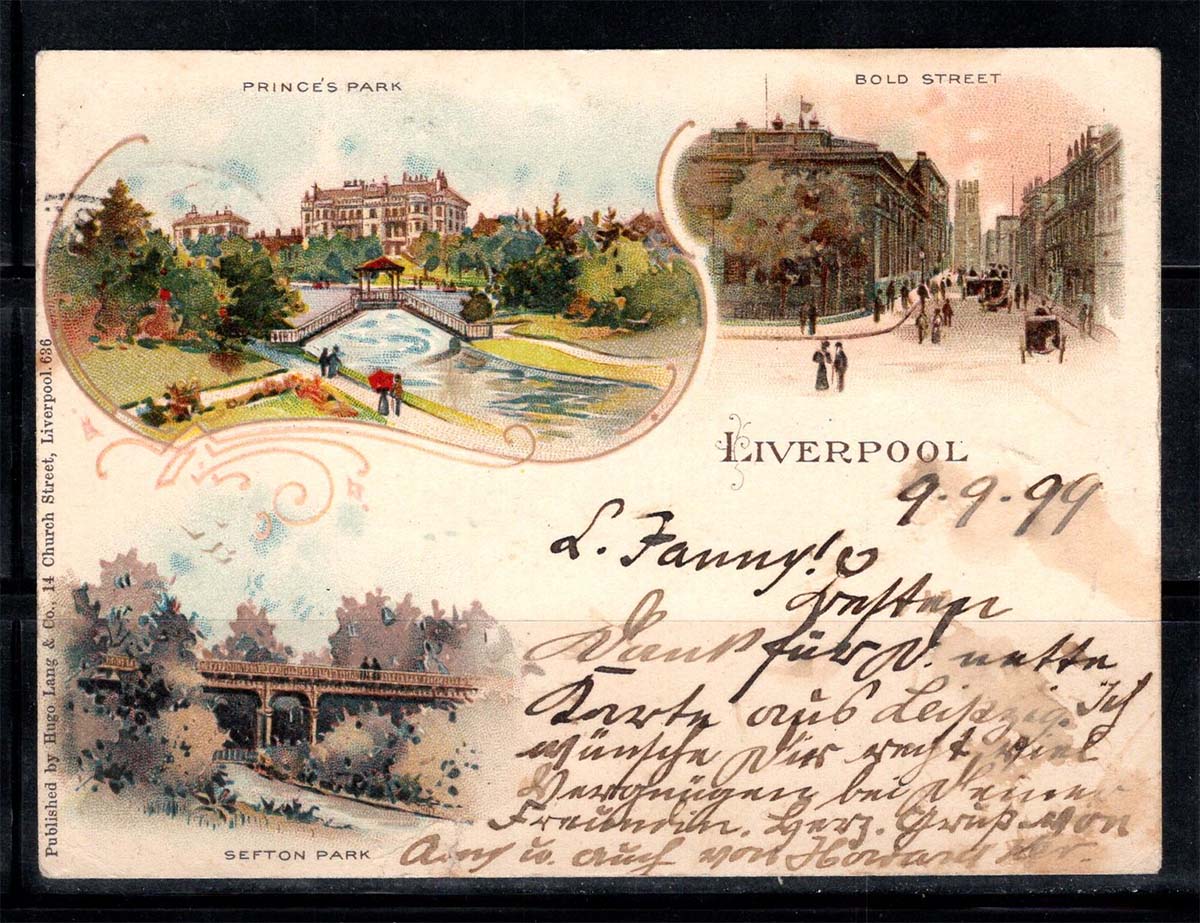 PRINCE'S PARK
BOLD STREET
LIVERPOOL
9.9.99
L. Fanny!
Besten
Dank für D. nette
Karte aus Leipzig. Ich
wünsche Dir recht viel
Vergnügen bei Deiner
Freundin. Herz. Gruß von
u. auch von
SEFTON PARK
Published by Hugo Lang & Co., 14 Church Street, Liverpool. 636